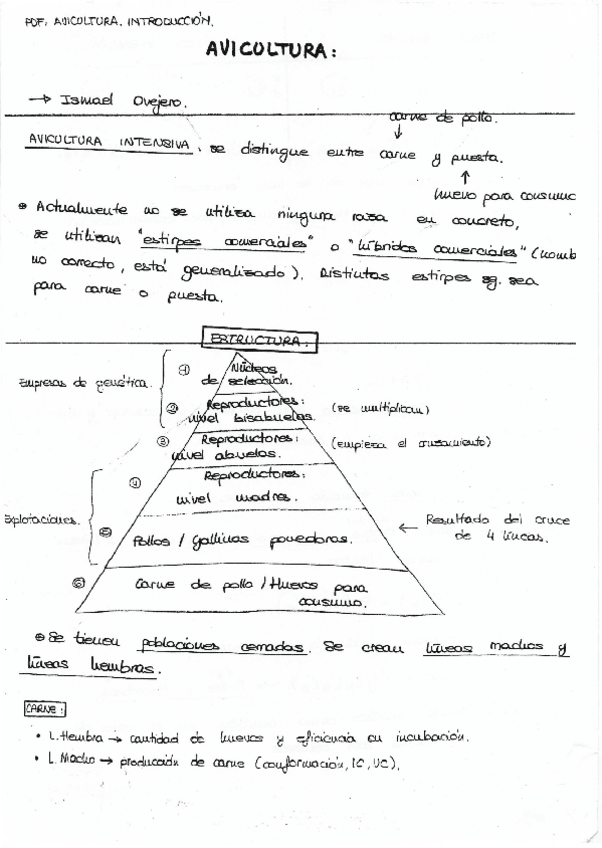 PDF: AVICULTURA. INTRODUCCIÓN.
AVICULTURA:
→ Ismael Ovejero.
carne de pollo.
↓
AVICULTURA INTENSIVA. se distingue entre carne y puesta.
↑
huevo para consumo
Actualmente no se utiliza ninguna raza en concreto,
se utilizan "estirpes comerciales" o "híbridos comerciales" (nomb
no correcto, está generalizado). Distintas estirpes sg. sea
para carne o puesta.
ESTRUCTURA.
Empresas de genética.
① Núcleos
de selección.
② Reproductores:
nivel bisabuelos. (se multiplican)
③ Reproductores: (empieza el cruzamiento)
nivel abuelos.
④ Reproductores:
nivel madres.
Explotaciones.
⑤ Pollos / Gallinas ponedoras.
← Resultado del cruce
de 4 líneas.
⑥ Carne de pollo / Huevos para
consumo.
Se tienen poblaciones cerradas. Se crean líneas machos y
líneas hembras.
CARNE:
• L. Hembra → cantidad de huevos y eficiencia en incubación.
• L. Macho → producción de carne (conformación, IC, VC).